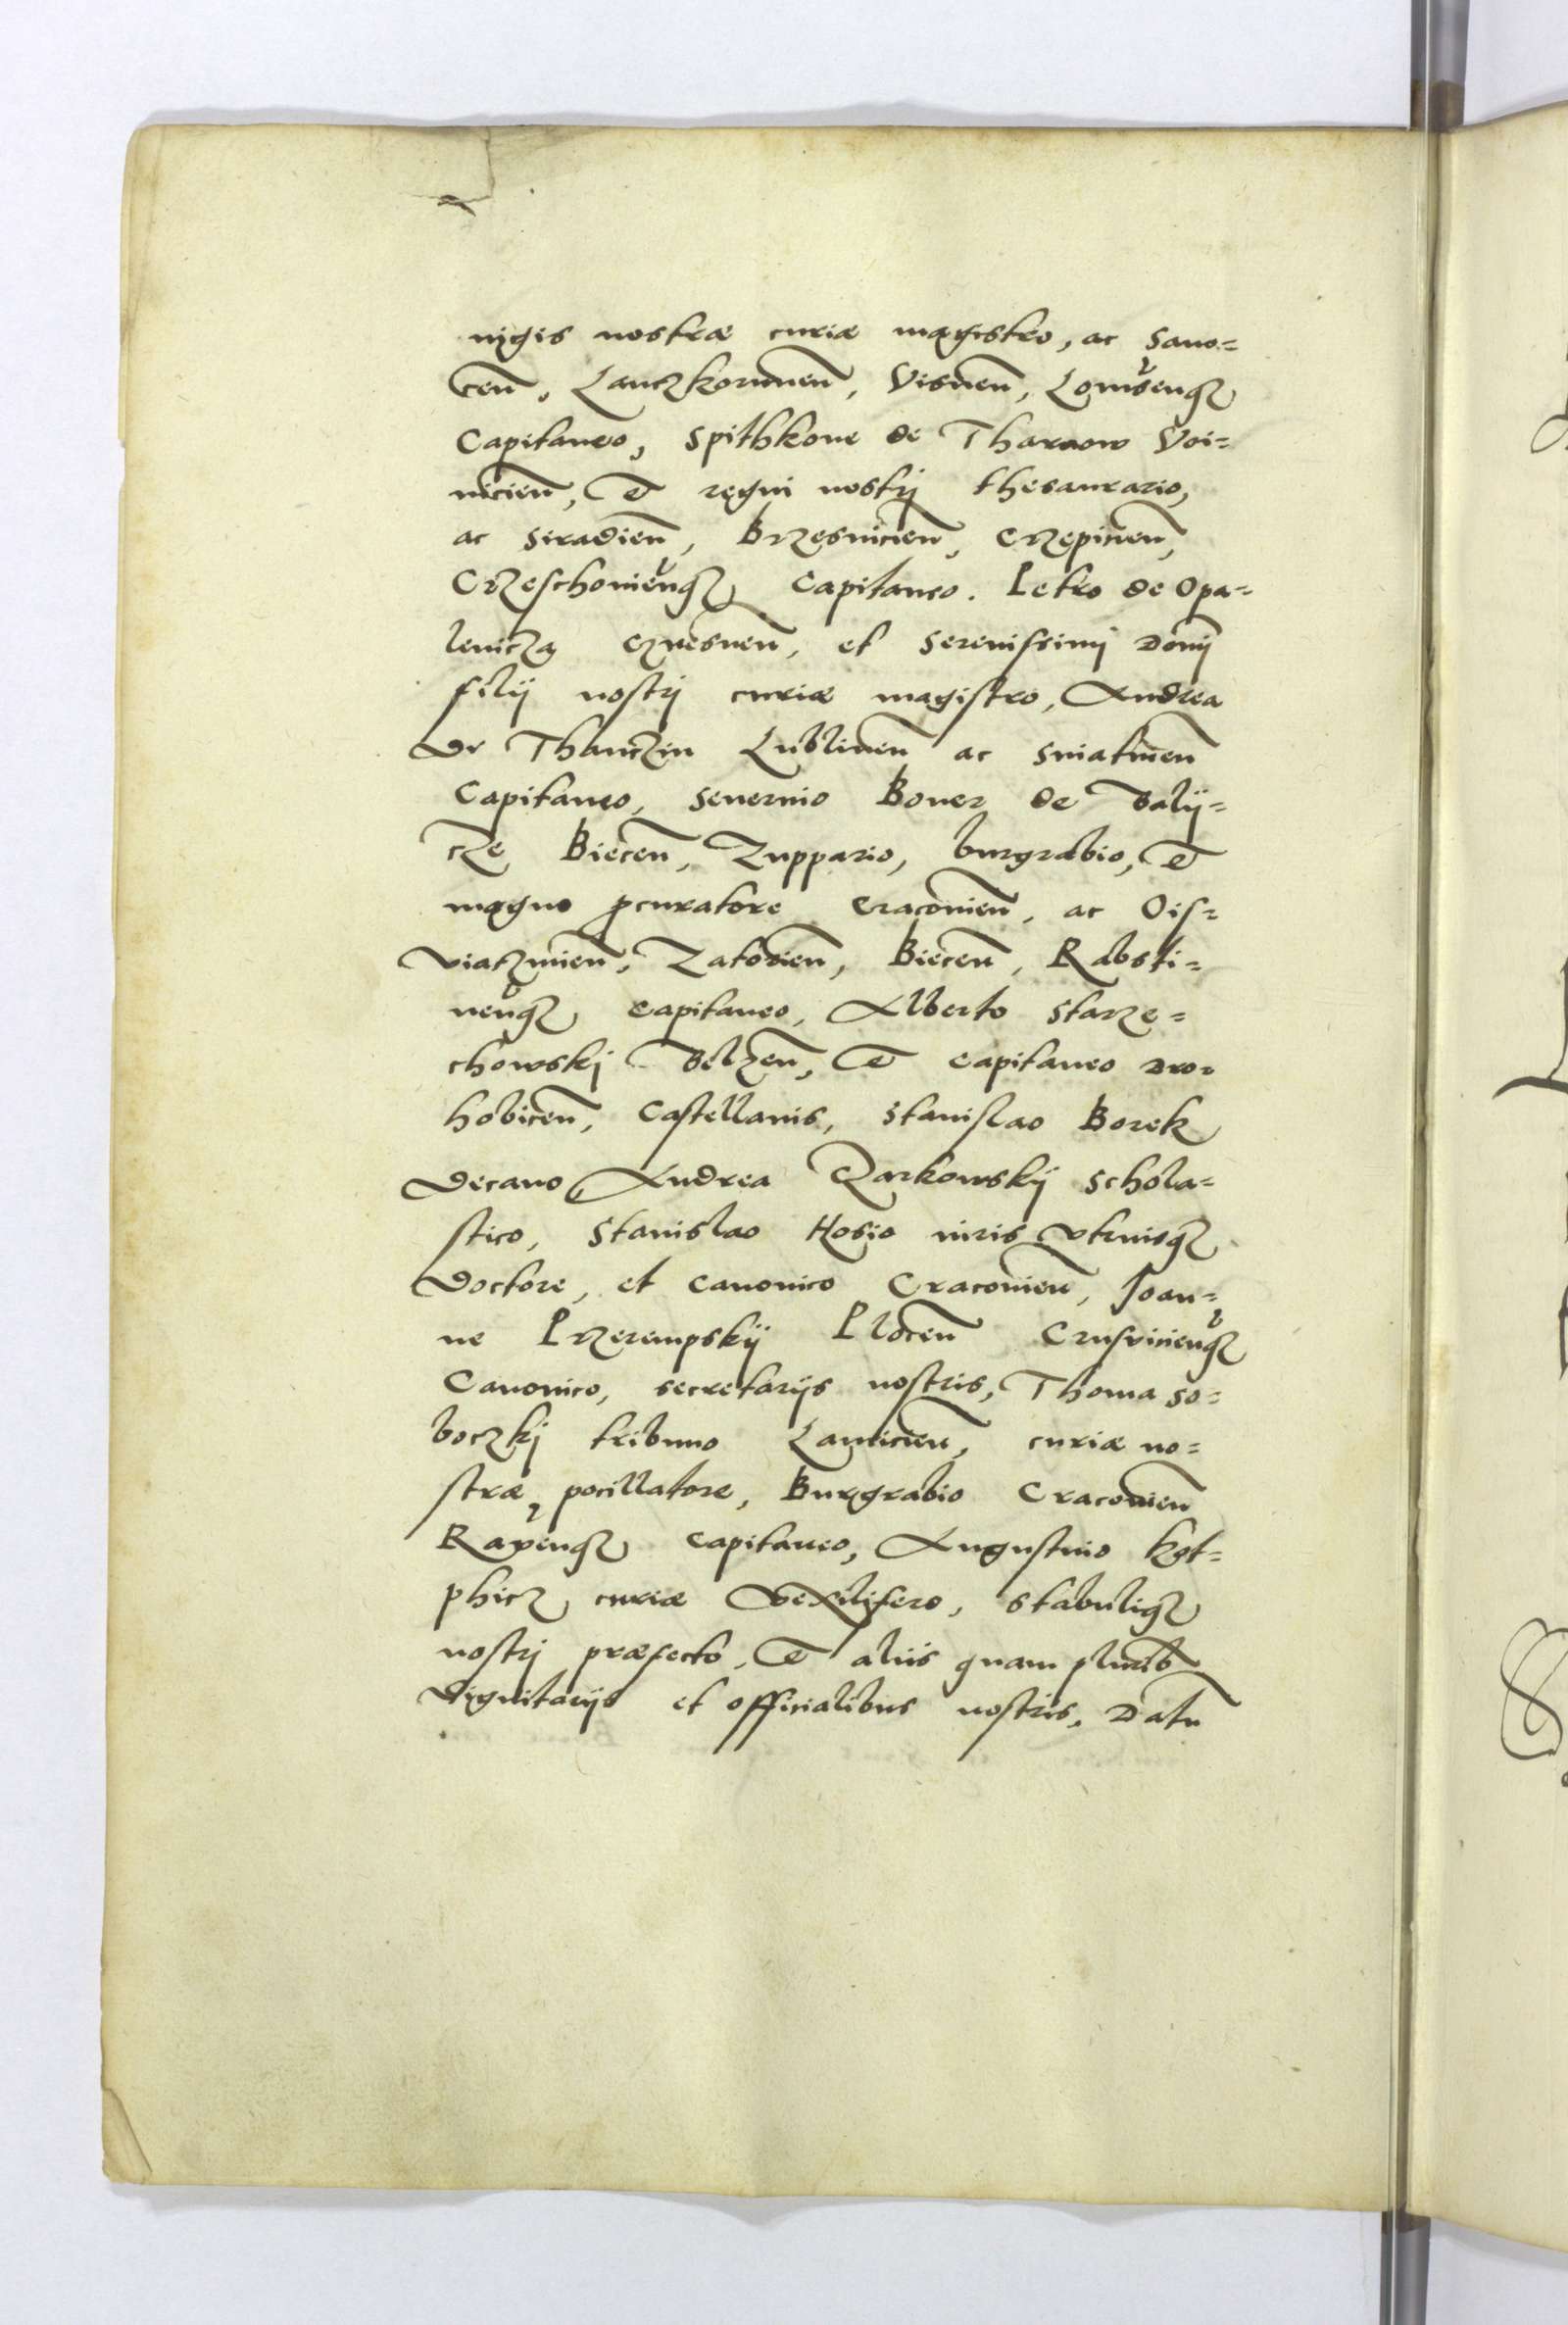 nigis nostræ curiæ magistro, ac Sano=
cen̄, Lanczkorunen̄, Visnen̄, Lomsenq̃
Capitaneo, Spithkone de Tharnow Voi=
nicien̄, et regni nostrj thesaurario,
ac Siradien̄, Brzesnicien̄, Crzepicen̄,
Crzeschoniēnq̃ Capitaneo. Petro de Opa=
lenicza Gznesnen̄, et Serenissimj Domj
filij nostrj curiæ magistro, Andrea
De Thanczin Lublinen̄ ac Sniatinen̄
Capitaneo, Severino Boner de Balij=
cze Biecen̄, Zuppario, burgrabio, et
magno ꝓcuratore Cracovien̄, ac Oss=
viatzmien̄, Zatorien̄, Biecen̄, Rabsti=
nenq̃ Capitaneo, Alberto Starze=
chowskj Belzen̄, et Capitaneo Dro=
hobicen̄, Castellanis, Stanislao Borek
Decano Andrea Czarkowskij Schola=
stico, Stanislao Hosio iuris Vtriusq̃
Doctore, et Canonico Cracovien̄, Joan=
ne Przerempskij Plocen̄ Crusvicienq̃
Canonico, secretarijs nostris, Thoma So=
boczkj tribuno Lancicien̄, curiæ no=
stræ pocillatore, Burgrabio Cracovien̄
Ravenq̃ Capitaneo, Augustino Kot=
phicz curiæ Vexilifero, stabuliq̃
nostrj præfecto, et aliis quam plurib
Dignitarijs et officialibus nostris, Datū